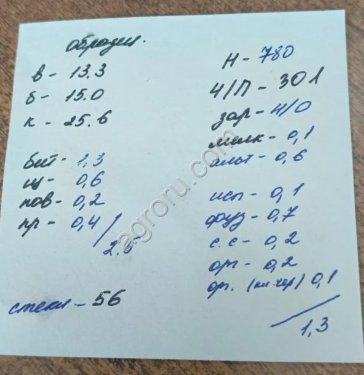 образец.
в - 13.3
б - 15.0
к - 25.6
бит - 1,3
щ - 0,6
пов - 0,2
пр - 0,4
2.5
стекл - 56
Н - 780
Ч/П - 301
зар - Н/О
мелк - 0,1
альт - 0,6
исп - 0,1
фуз - 0,7
с.с - 0,2
орг - 0,2
ор. 0,1
1,3
agroru.com